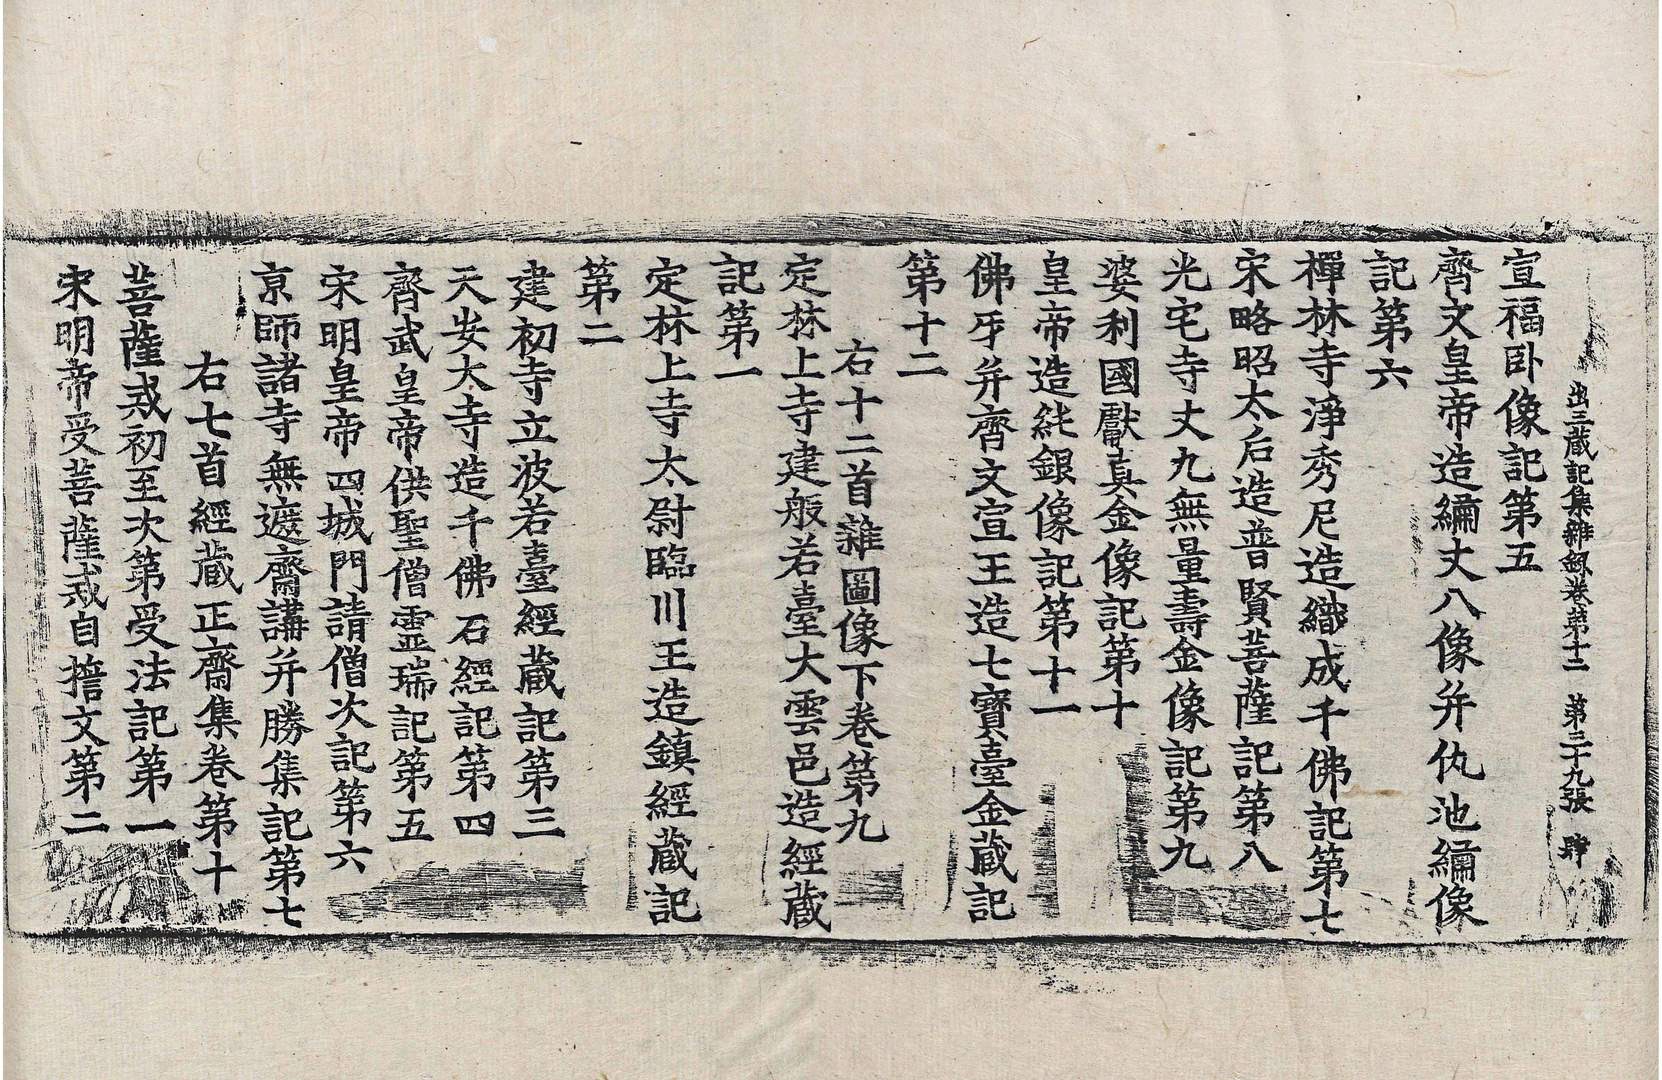 出三蔵記集雜録卷第十二 第三十九張 肆
宣福卧像記第五
齊文皇帝造繡丈八像并仇池繡像
記第六
禪林寺淨秀尼造織成千佛記第七
宋略昭太后造普賢菩薩記第八
光宅寺丈九無量壽金像記第九
婆利國獻真金像記第十
皇帝造純銀像記第十一
佛牙并齊文宣王造七寶臺金蔵記
第十二
右十二首雜圖像下卷第九
定林上寺建般若臺大雲邑造經蔵
記第一
定林上寺太尉臨川王造鎮經蔵記
第二
建初寺立波若臺經蔵記第三
天安大寺造千佛石經記第四
齊武皇帝供聖僧靈瑞記第五
宋明皇帝四城門請僧次記第六
京師諸寺無遮齋講并勝集記第七
右七首經蔵正齋集卷第十
菩薩戒初至次第受法記第一
宋明帝受菩薩戒自擔文第二